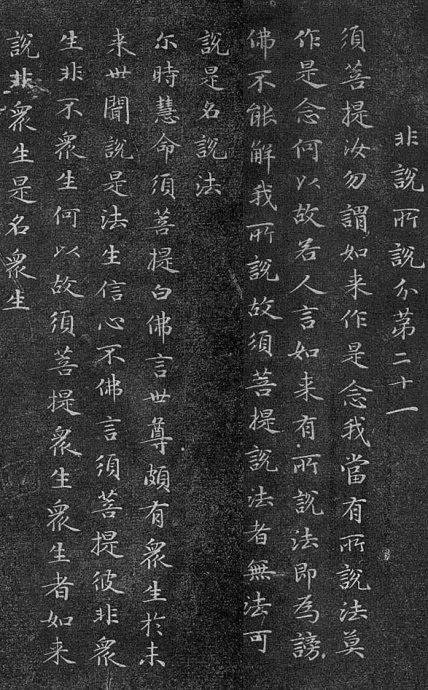 非說所說分第二十一
須菩提汝勿謂如来作是念我當有所說法莫
作是念何以故若人言如来有所說法即為謗
佛不能解我所說故須菩提說法者無法可
說是名說法
尔時慧命須菩提白佛言世尊頗有衆生於未
来世聞說是法生信心不佛言須菩提彼非衆
生非不衆生何以故須菩提衆生衆生者如来
說非衆生是名衆生